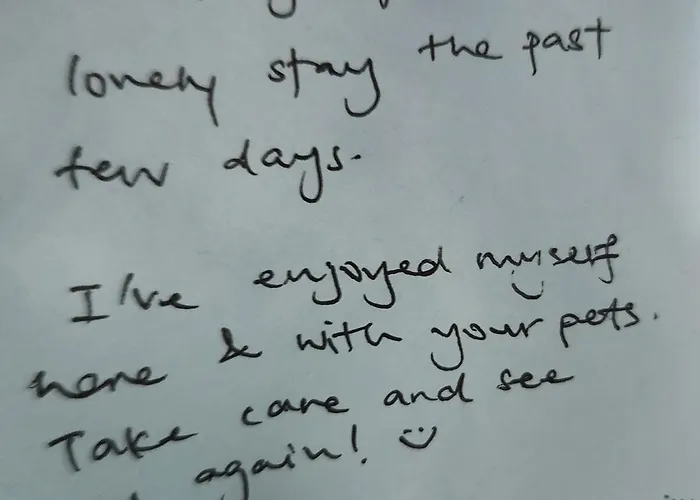 lonely stay the past
few days.
I've enjoyed myself
here & with your pets.
Take care and see
again! :)